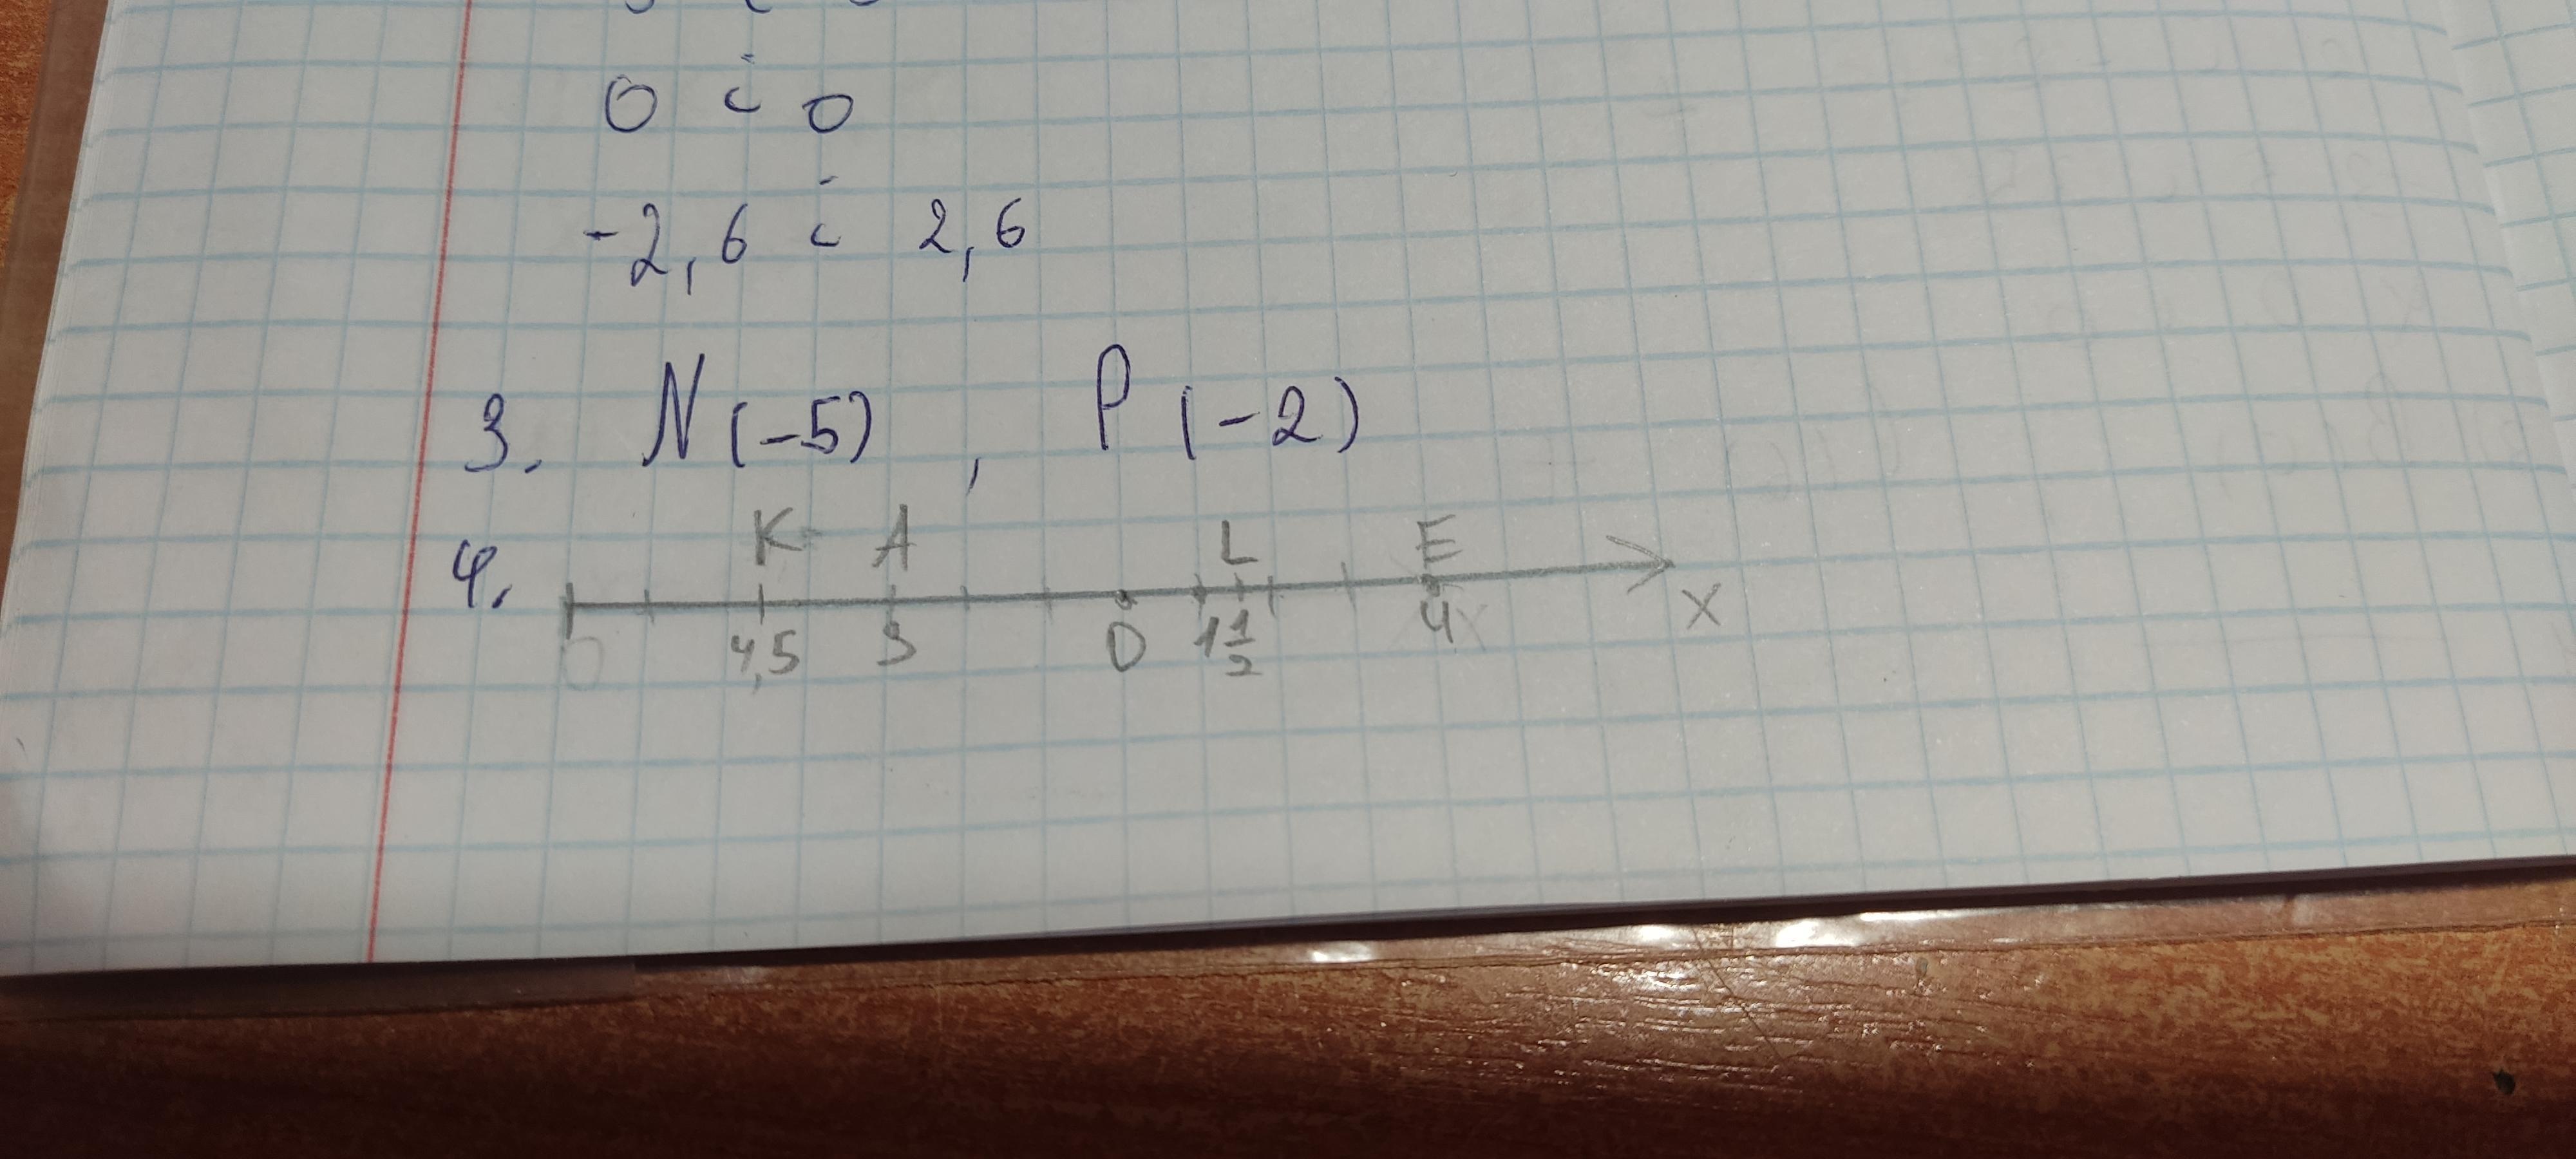 0 и 0
-2,6 и 2,6
3. N(-5), P(-2)
4. K A L E
4,5 3 0 1 1/2 4 x